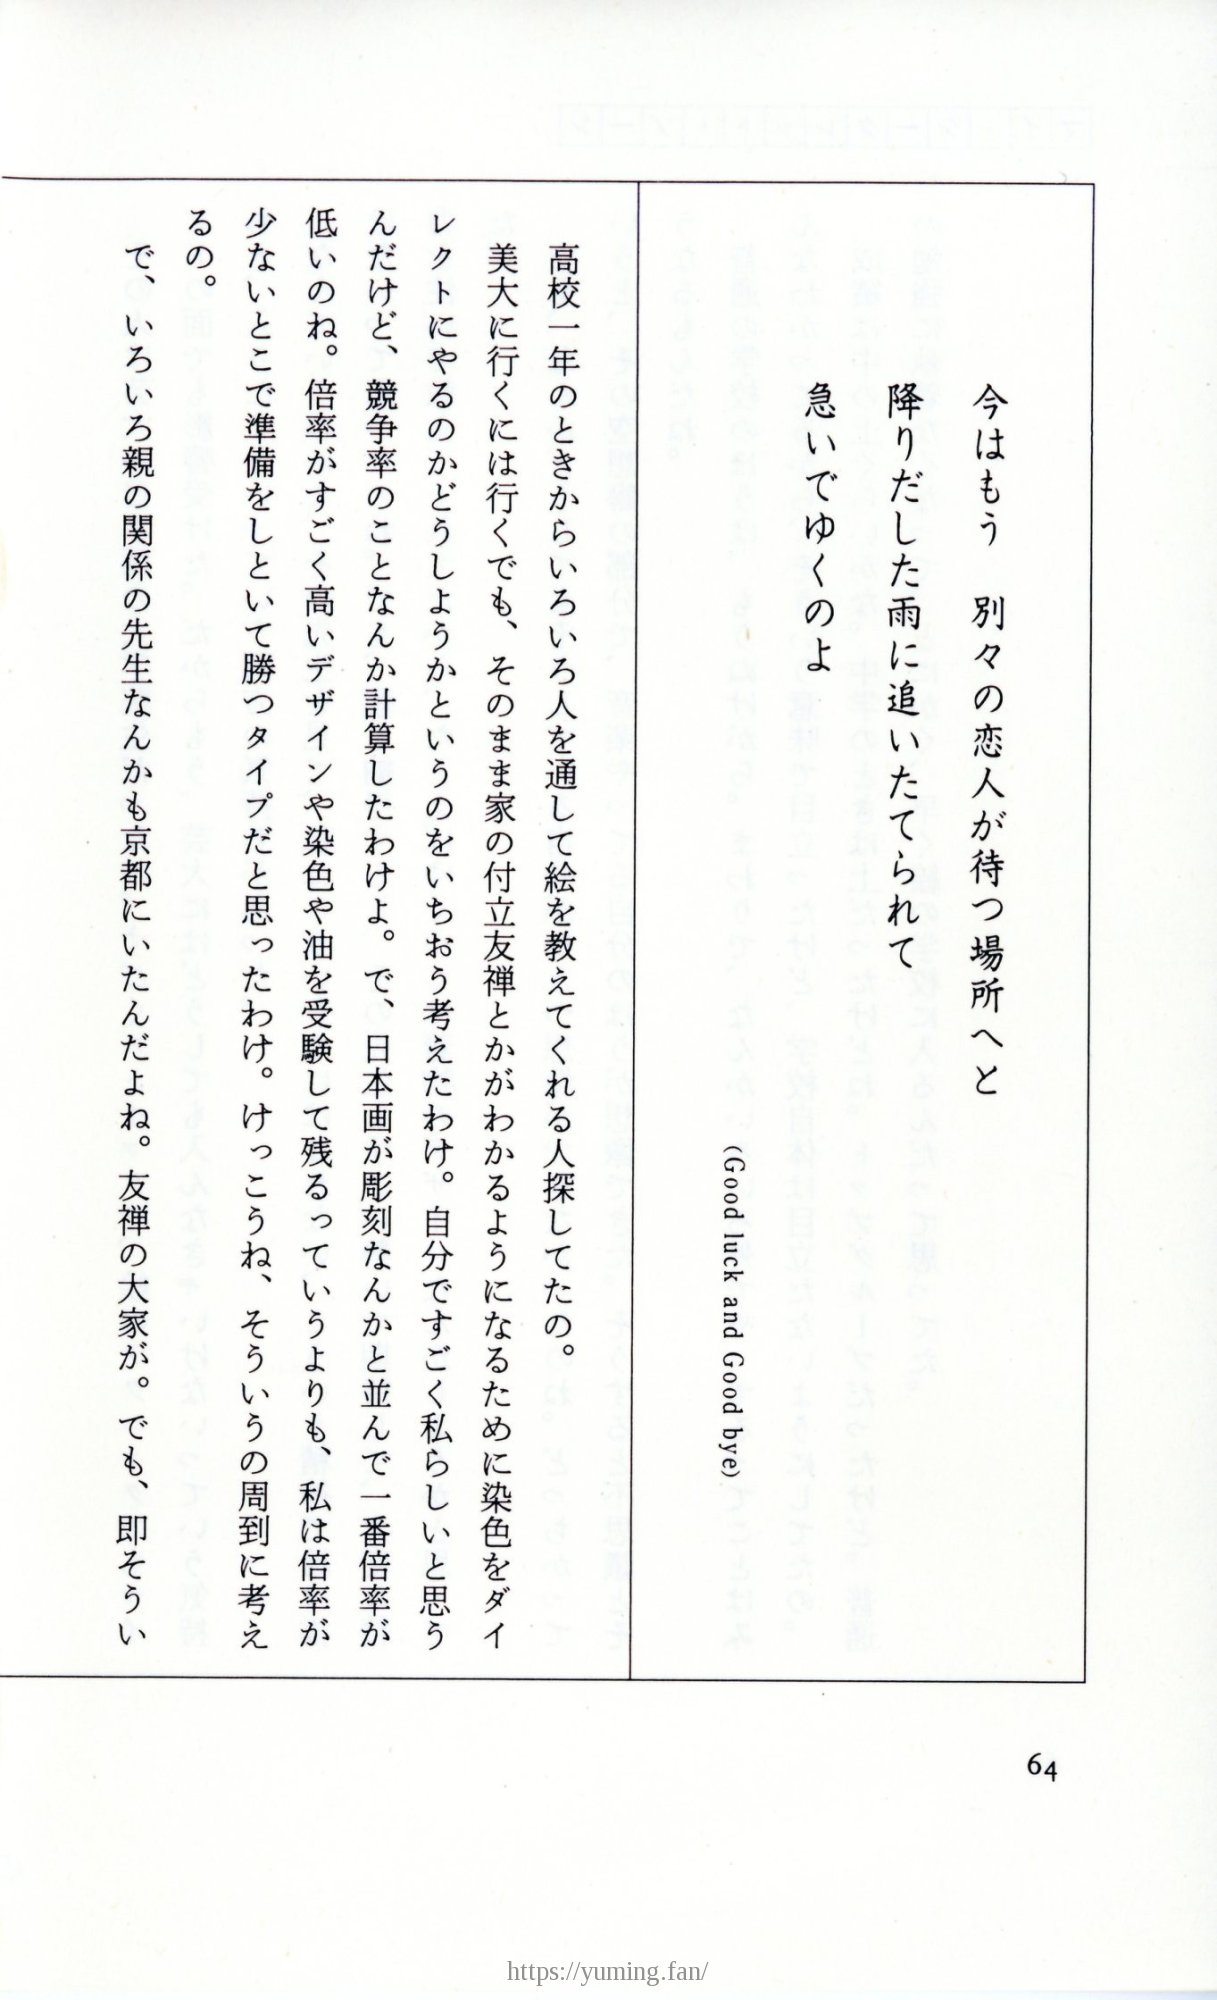 今はもう　別々の恋人が待つ場所へと
降りだした雨に追いたてられて
急いでゆくのよ
(Good luck and Good bye)
高校一年のときからいろいろ人を通して絵を教えてくれる人探してたの。
美大に行くには行くでも、そのまま家の付立友禅とかがわかるようになるために染色をダイ
レクトにやるのかどうしようかというのをいちおう考えたわけ。自分ですごく私らしいと思う
んだけど、競争率のことなんか計算したわけよ。で、日本画が彫刻なんかと並んで一番倍率が
低いのね。倍率がすごく高いデザインや染色や油を受験して残るっていうよりも、私は倍率が
少ないとこで準備をしといて勝つタイプだと思ったわけ。けっこうね、そういうの周到に考え
るの。
で、いろいろ親の関係の先生なんかも京都にいたんだよね。友禅の大家が。でも、即そうい
64
https://yuming.fan/